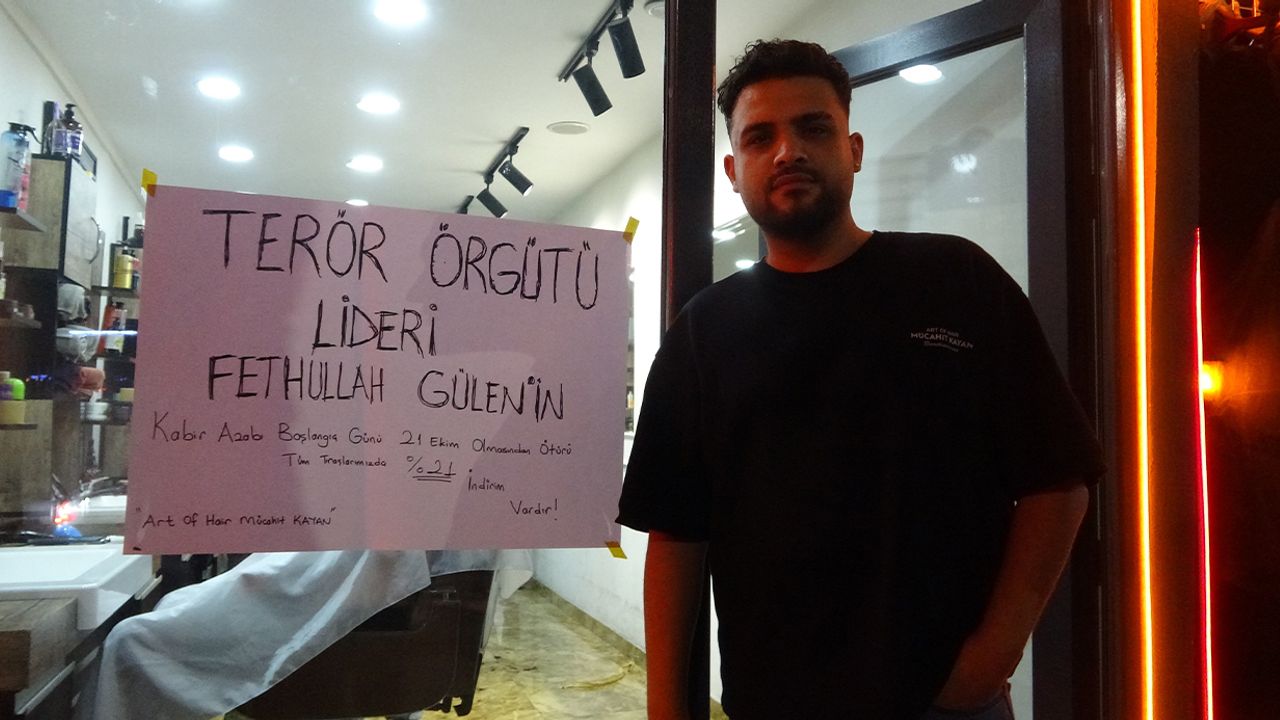 TERÖR ÖRGÜTÜ
LİDERİ
FETHULLAH GÜLEN'İN
Kabir Azabı Başlangıç Günü 21 Ekim Olmasından Ötürü
Tüm Traşlarımızda %21 İndirim
Vardır!
"Art Of Hair Mücahit KAYAN"
ART OF HAIR
MÜCAHİT KAYAN